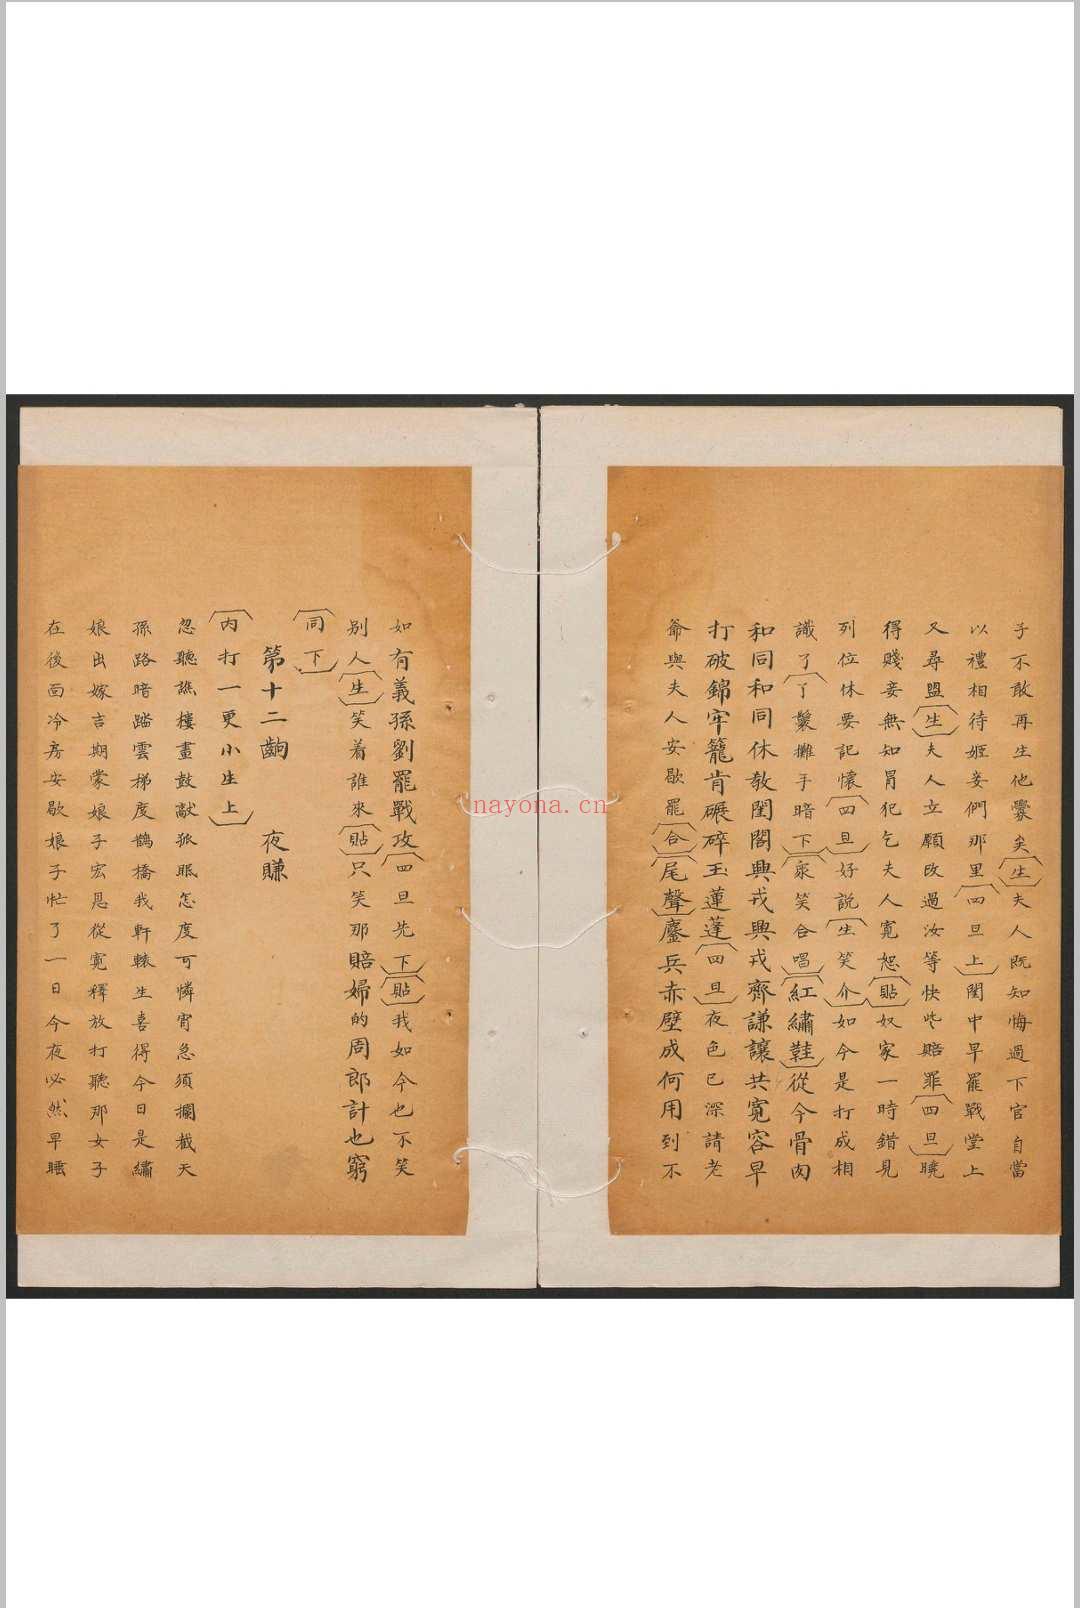 子不敢再生他釁矣(生)夫人既知悔過下官自當
以禮相待姬妾們那里(四旦上)閨中早罷戰堂上
又尋盟(生)夫人立願改過汝等快些賠罪(四旦)曉
得賤妾無知冒犯乞夫人寬恕(貼)奴家一時錯見
列位休要記懷(四旦)好說(生笑介)如今是打成相
識了(丫鬟攤手暗下)(衆笑合唱)(紅繡鞋)從今骨肉
和同和同休教閨閣興戎興戎齊謙讓共寬容早
打破錦牢籠肯碾碎玉蓮蓬(四旦)夜色已深請老
爺與夫人安歇罷(合)(尾聲)鏖兵赤壁成何用到不
如有義孫劉罷戰攻(四旦先下)(貼)我如今也不笑
別人(生)笑着誰來(貼)只笑那賠婦的周郎計也窮
(同下)
第十二齣 夜賺
(内打一更小生上)
忽聽譙樓畫鼓敲孤眠怎度可憐宵急須攔截天
孫路暗踏雲梯度鵲橋我軒轅生喜得今日是繡
娘出嫁吉期蒙娘子宏恩從寬釋放打聽那女子
在後面冷房安歇娘子忙了一日今夜必然早睡
nayona.cn